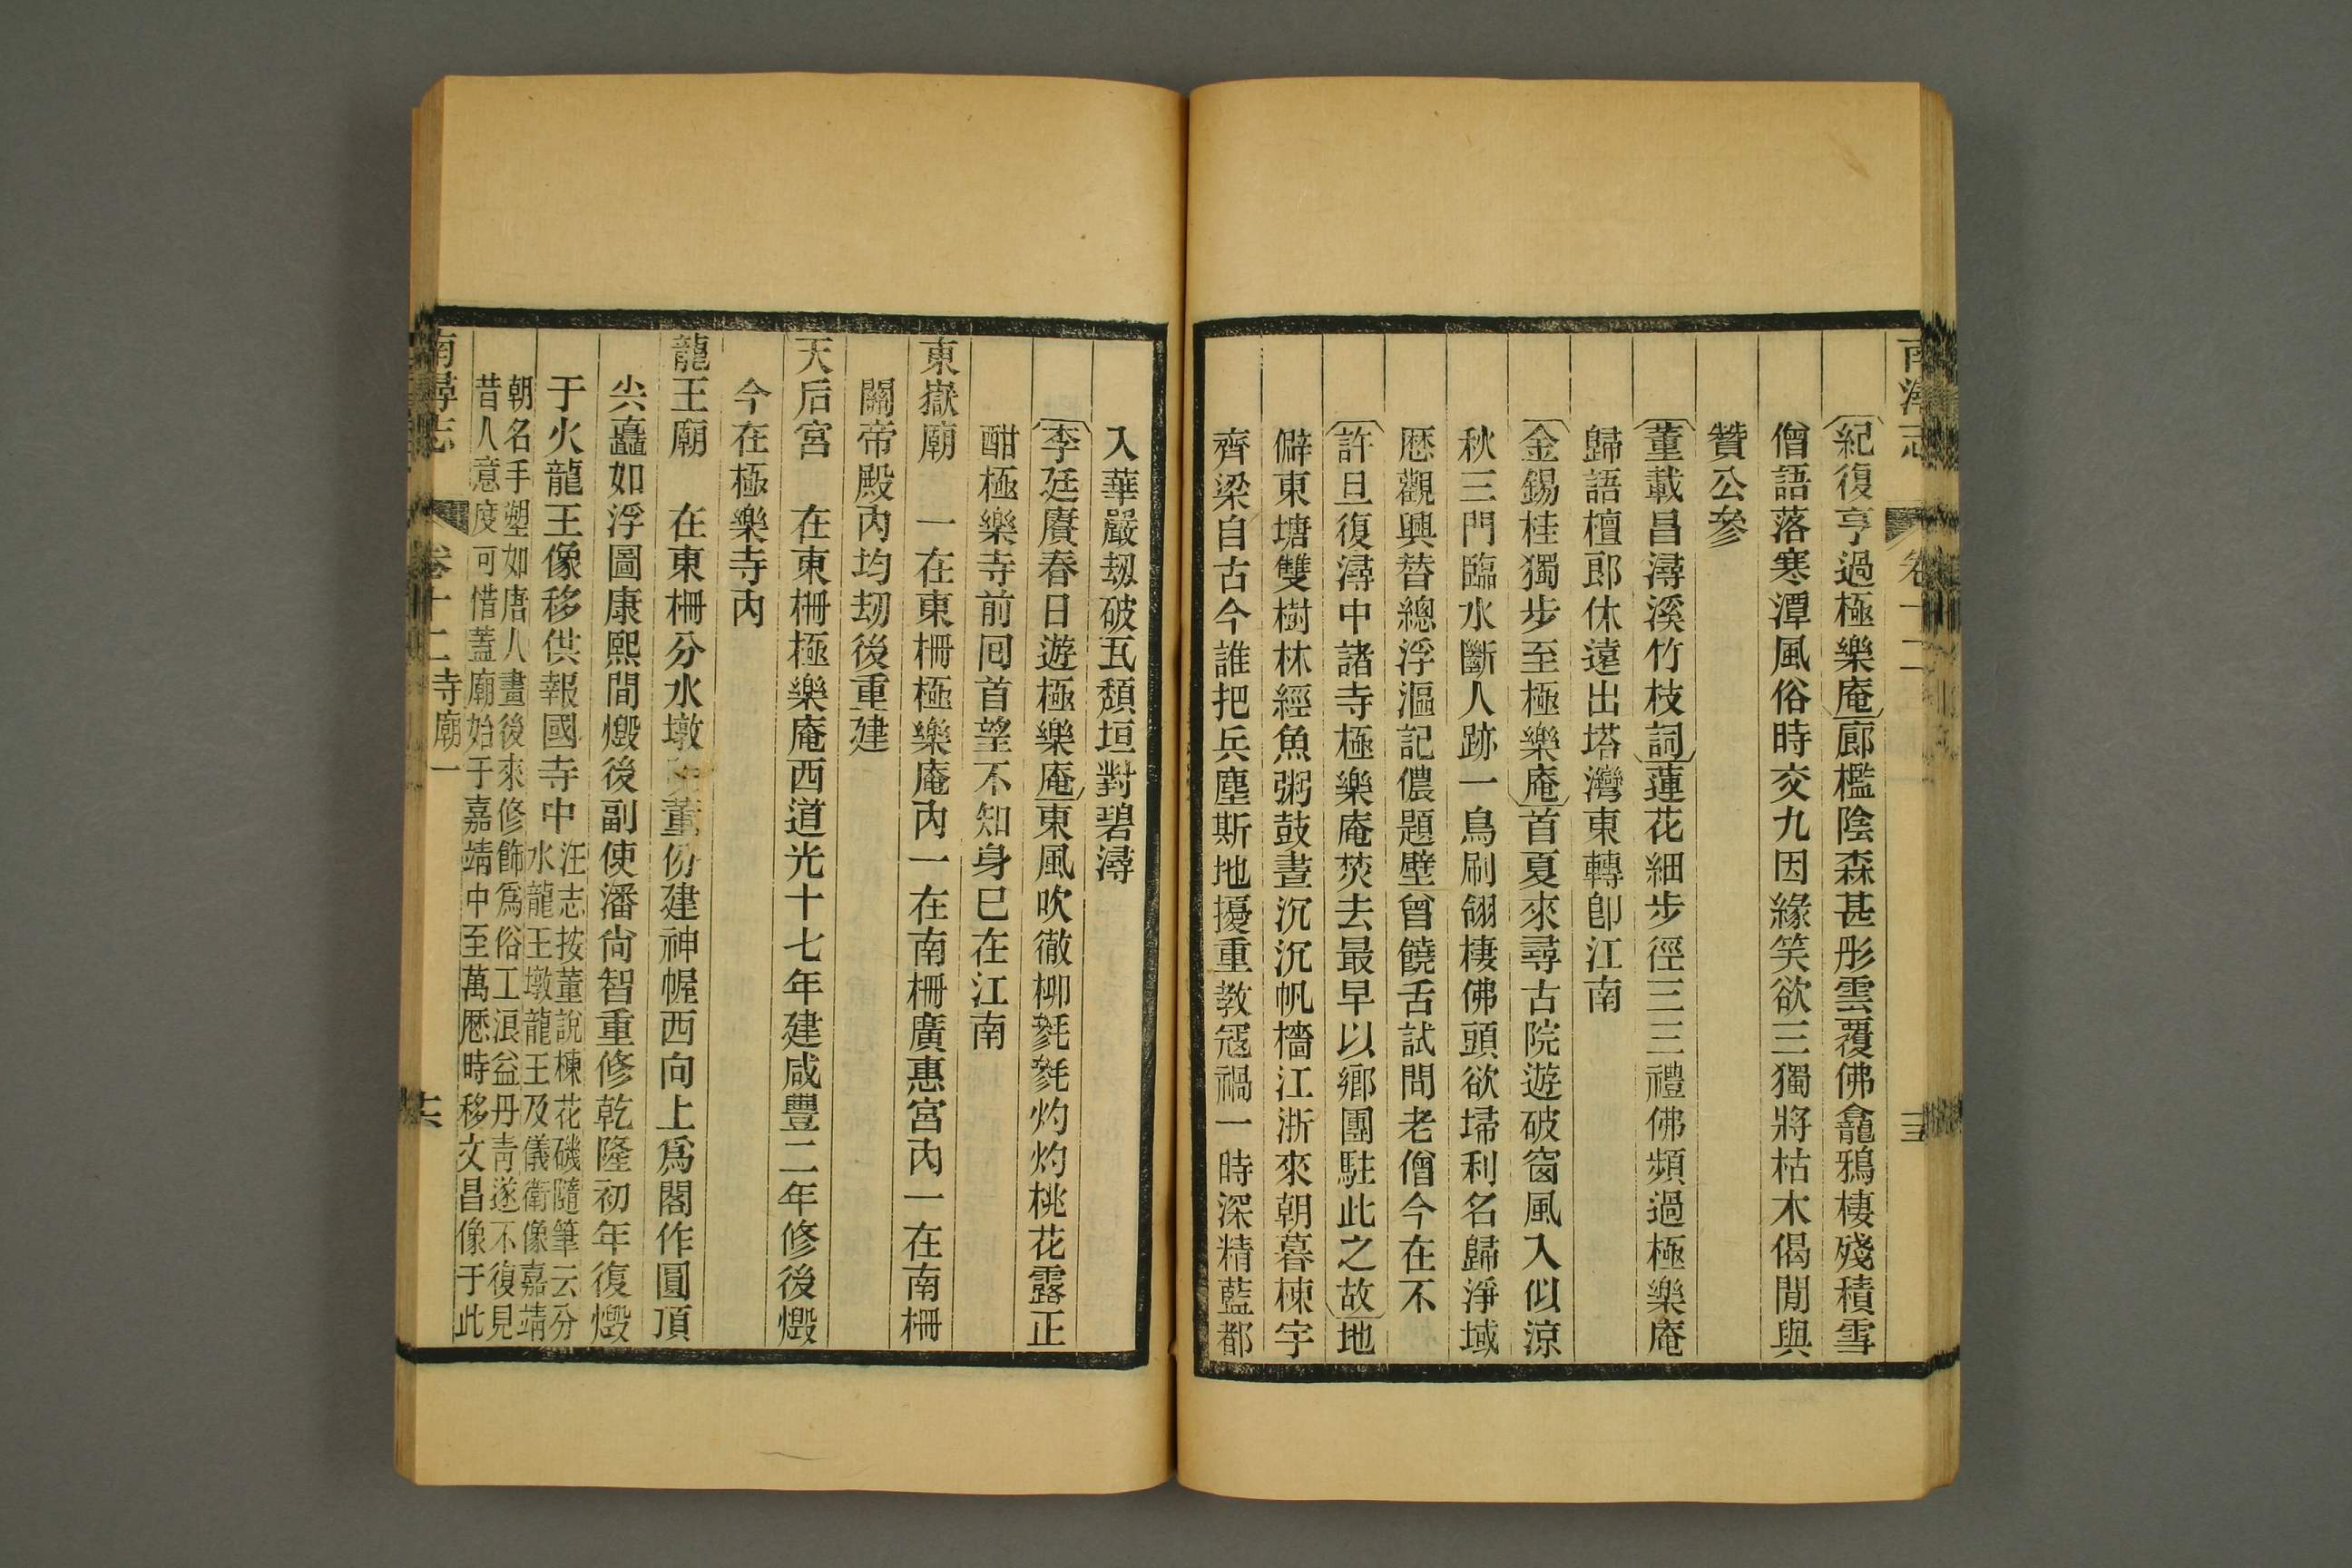 南潯志 卷十二
紀復亨過極樂庵廊檻陰森甚彤雲覆佛龕鴉棲殘積雪
僧語落寒潭風俗時交九因緣笑欲三獨將枯木偈閒與
贊公參
董載昌潯溪竹枝詞蓮花細步徑三三禮佛頻過極樂庵
歸語檀郎休遠出塔灣東轉卽江南
金錫桂獨步至極樂庵首夏來尋古院遊破窗風入似涼
秋三門臨水斷人跡一鳥刷翎棲佛頭欲埽利名歸淨域
歷觀興替總浮漚記儂題壁曾饒舌試問老僧今在不
許旦復潯中諸寺極樂庵焚去最早以鄉團駐此之故地
僻東塘雙樹林經魚粥鼓晝沉沉帆檣江浙來朝暮棟宇
齊梁自古今誰把兵塵斯地擾重教寇禍一時深精藍都
入華嚴刼破瓦頹垣對碧潯
李廷賡春日遊極樂庵東風吹徹柳毿毿灼灼桃花露正
酣極樂寺前囘首望不知身已在江南
東嶽廟 一在東柵極樂庵內一在南柵廣惠宮內一在南柵
關帝殿內均刼後重建
天后宮 在東柵極樂庵西道光十七年建咸豐二年修後燬
今在極樂寺內
龍王廟 在東柵分水墩董份建神幄西向上爲閣作圓頂
尖矗如浮圖康熙間燬後副使潘尚智重修乾隆初年復燬
于火龍王像移供報國寺中
汪志按董說楝花磯隨筆云分
水龍王墩龍王及儀衛像嘉靖
朝名手塑如唐人畫後來修飾爲俗工浪益丹靑遂不復見
昔人意度可惜蓋廟始于嘉靖中至萬歷時移文昌像于此
南潯志 卷十二 寺廟一